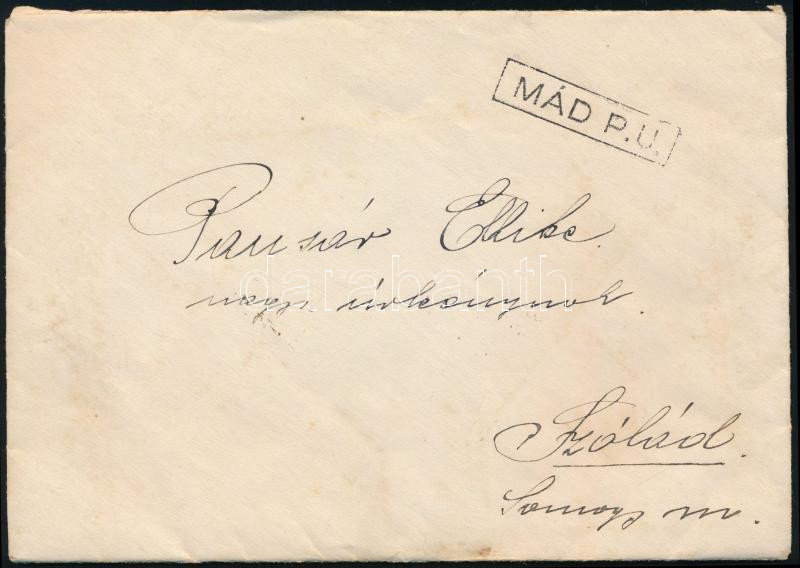 MÁD P.U.
Pausár Ellike
nagys. úrleánynak.
darabanth
Szólád.
Somogy m.